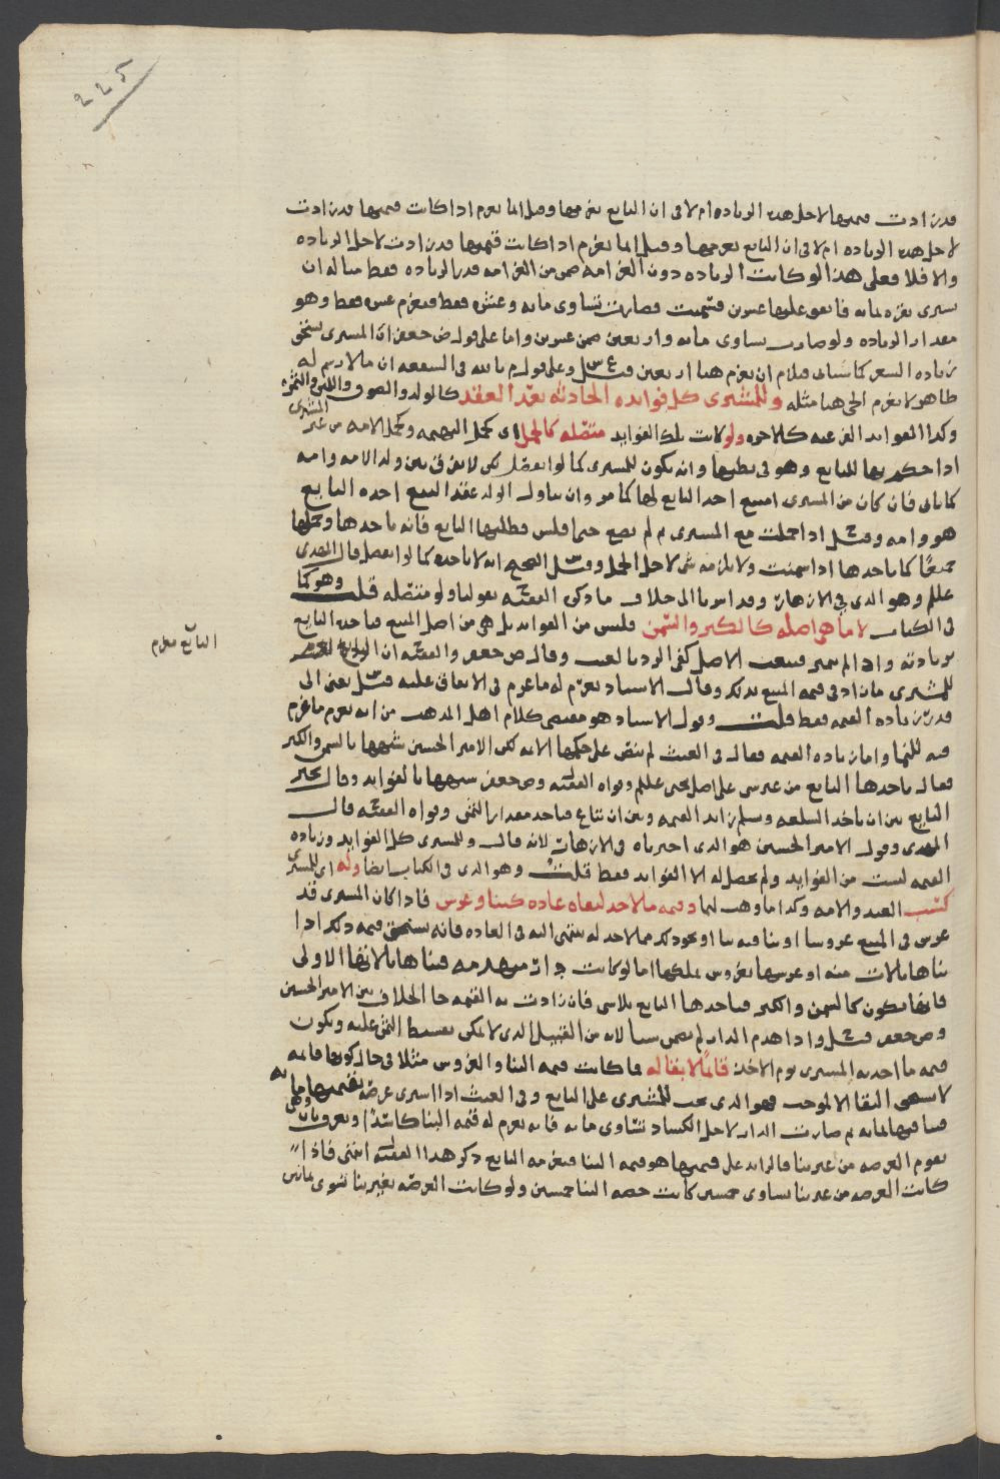 ٢٢٥
قد زادت قيمتها لاجل هذه الزياده ام لا في ان البايع يغرمها وقيل انما يغرم اذا كانت قيمتها قد زادت
لاجل هذه الزياده ام لا في ان البايع يغرمها وقيل انما يغرم اذا كانت قيمتها قد زادت لاجل الزياده
والا فلا فعلى هذا لو كانت الزياده دون الغرامه ضمن من الغرامه قدر الزياده فقط مثاله ان
يشتري بقره بمايه فانفق عليها عشرين فسمنت فصارت تساوي مايه وعشر فقط فيغرم عشر فقط وهو
مقدار الزياده ولو صارت تساوي مايه واربعين ضمن عشرين واما على قول ض جعفر ان المشتري يستحق
زياده السعر كما سياتي فيلزم ان يغرم هنا اربعين وعلى قول م بالله في الشفعه ان مالا رسم له
ظاهر لا يغرم الخ هنا مثله وللمشتري كل فوايده الحادثه بعد العقد كالولد والصوف واللبن والثمر
وكذا الفوايد الفرعيه كالاجره ولو كانت تلك الفوايد متصله كالحمل اي كحمل البهيمه وكحمل الامه من غير المشتري
اذا حكم بها للبايع وهو في بطنها وانه يكون للمشتري كما لو انفصل لكن لا يفرق بين ولد الامه وامه
كما ياتي فان كان من المشتري امتنع اخذ البايع لها كما مر وان تناول الولد عقد البيع اخذه البايع
هو وامه وقيل اذا حملت مع المشتري ثم لم يضع حتى افلس فطلبها البايع فانه ياخذها وحملها
جميعًا كما ياخذها اذا سمنت ولا يلزمه شي لاجل الحمل وقيل الصحيح انه لا ياخذه كما لو انفصل قال المهدي
عللم وهو الذي في الازهار وقد اشرنا الى خلاف ما ذكر الفقيه بقولنا ولو متصله قلت وهو كما
في الكتاب لا ما هي اصله كالكبر والسمن فليس من الفوايد بل هي من اصل المبيع فياخذه البايع
بزيادته واذا لم يتميز فيتعيب الاصل كفى الرد بالعيب وقال ض جعفر والفقيه ان البايع يغرم
للمشتري ما زاد في قيمه المبيع بذلك وقال الاستاد يغرم له ما غرم في الانفاق عليه قيل يعني الى
قدر زياده القيمه فقط قلت وقول الاستاد هو مقتضى كلام اهل المذهب من انه يغرم ما غرم
فيه للنما واما زياده القيمه فقال في الغيث لم ينص على حكمها الا انه لكن الامير الحسين شبهها بالسمن والكبر
فقال ياخذها البايع من غير شي على اصل يحيى عللم وقواه الفقيه وض جعفر شبهها بالفوايد وقال يخير
البايع بين ان ياخذ السلعه ويسلم زايد القيمه وبين ان تباع فياخذ مقدار الثمن وقواه الفقيه قال
المهدي وقول الامير الحسين هو الذي اخترناه في الازهار لانه قال وللمشتري كل الفوايد وزياده
القيمه ليست من الفوايد ولم يجعل له الا الفوايد فقط قلت وهو الذي في الكتاب ايضا وله اي للمشتري
كسب العبد والامه وكذا ما وهب لهما وقيمه ما لا حد لبقاه عاده كبنا وغرس فاذا كان المشتري قد
غرس في المبيع غروسا او بنا فيه بنا او نحو ذلك مما لا حد له ينتهي اليه في العاده فانه يستحق قيمه ذلك اذا
بناها بالات منه او غرسها بغروس يملكها
فانها تكون كالسمن والكبر فياخذها البايع بلا شي فان زادت به القيمه جا الخلاف بين الامير الحسين
وض جعفر قيل واذا هدم الدار لم يضمن شيا لانه من القبيل الذي لا يمكن تقسيط الثمن عليه ويكون
قيمه ما احدثه المشتري يوم الاخذ قائمًا لا بقا له فما كانت قيمه البنا والغروس مثلا في حال كونها قايمه
لا تستحق البقا الا لموجب فهو الذي يجب للمشتري على البايع وفي الغيث اذا اشترى عرصه
فبنا فيها بمايه ثم صارت الدار لاجل الكساد تساوي مايه فانه يغرم له قيمه البنا كاسدًا
تقوم العرصه من غير بنا فالزايد على قيمتها هو قيمه البنا فيغرمه البايع ذكر هذا الفقيه انتهى فاذا
كانت العرصه من غير بنا تساوي خمسين كانت حصه البنا خمسين ولو كانت العرصه بغير بنا تسوى مايتين
البايع يغرم